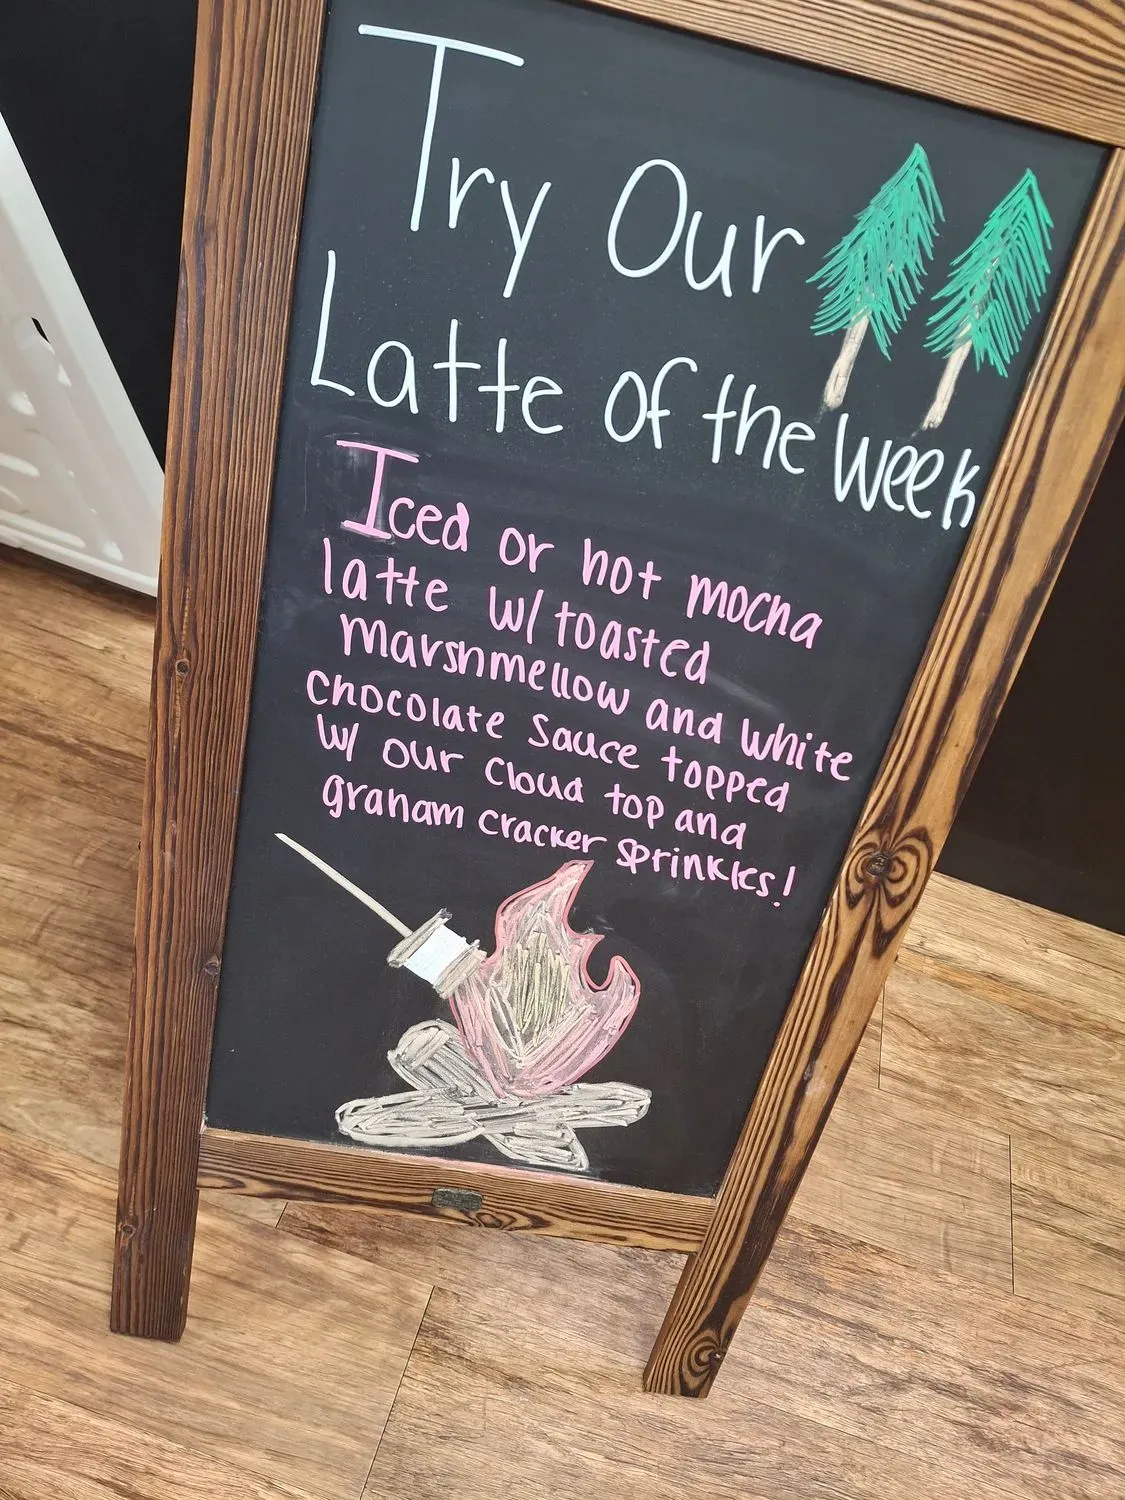 Try Our
Latte of the Week
Iced or hot mocha
latte w/ toasted
marshmellow and white
chocolate sauce topped
w/ our cloud top and
graham cracker sprinkles!